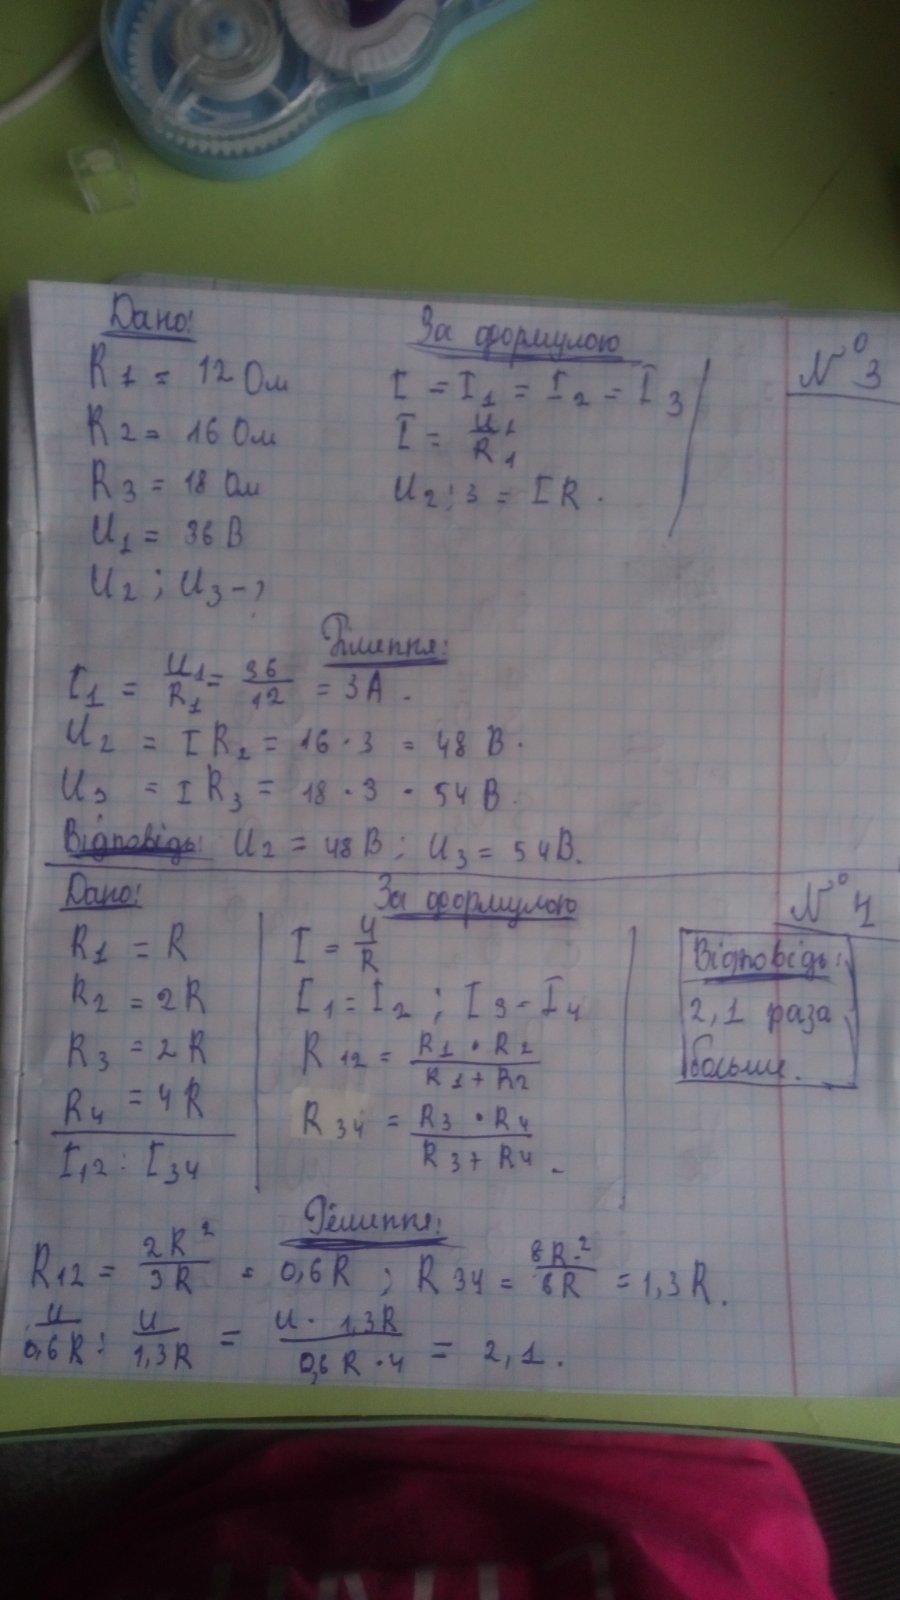 № 3
Дано:
R1 = 12 Ом
R2 = 16 Ом
R3 = 18 Ом
U1 = 36 В
U2 ; U3 - ?
За формулою
I = I1 = I2 = I3
I = U1/R1
U2;3 = IR.
Рішення:
I1 = U1/R1 = 36/12 = 3А.
U2 = IR2 = 16 · 3 = 48 В.
U3 = IR3 = 18 · 3 = 54 В.
Відповідь: U2 = 48В; U3 = 54В.
№ 4
Дано:
R1 = R
R2 = 2R
R3 = 2R
R4 = 4R
I12 : I34
За формулою
I = U/R
I1 = I2 ; I3 = I4
R12 = R1 · R2/R1 + R2
R34 = R3 · R4/R3 + R4.
Відповідь:
2,1 раза
больше.
Рішення:
R12 = 2R²/3R = 0,6R ; R34 = 8R²/6R = 1,3R.
U/0,6R : U/1,3R = U · 1,3R/0,6R · U = 2,1.